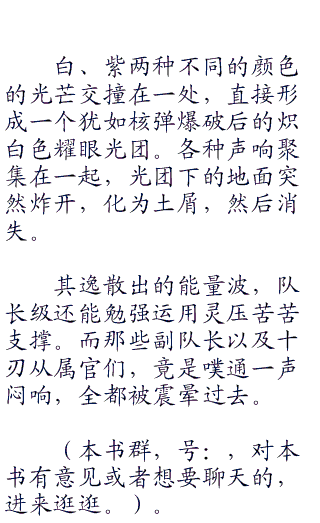 白、紫两种不同的颜色
的光芒交撞在一处，直接形
成一个犹如核弹爆破后的炽
白色耀眼光团。各种声响聚
集在一起，光团下的地面突
然炸开，化为土屑，然后消
失。
其逸散出的能量波，队
长级还能勉强运用灵压苦苦
支撑。而那些副队长以及十
刃从属官们，竟是噗通一声
闷响，全都被震晕过去。
（本书群，号：，对本
书有意见或者想要聊天的，
进来逛逛。）。